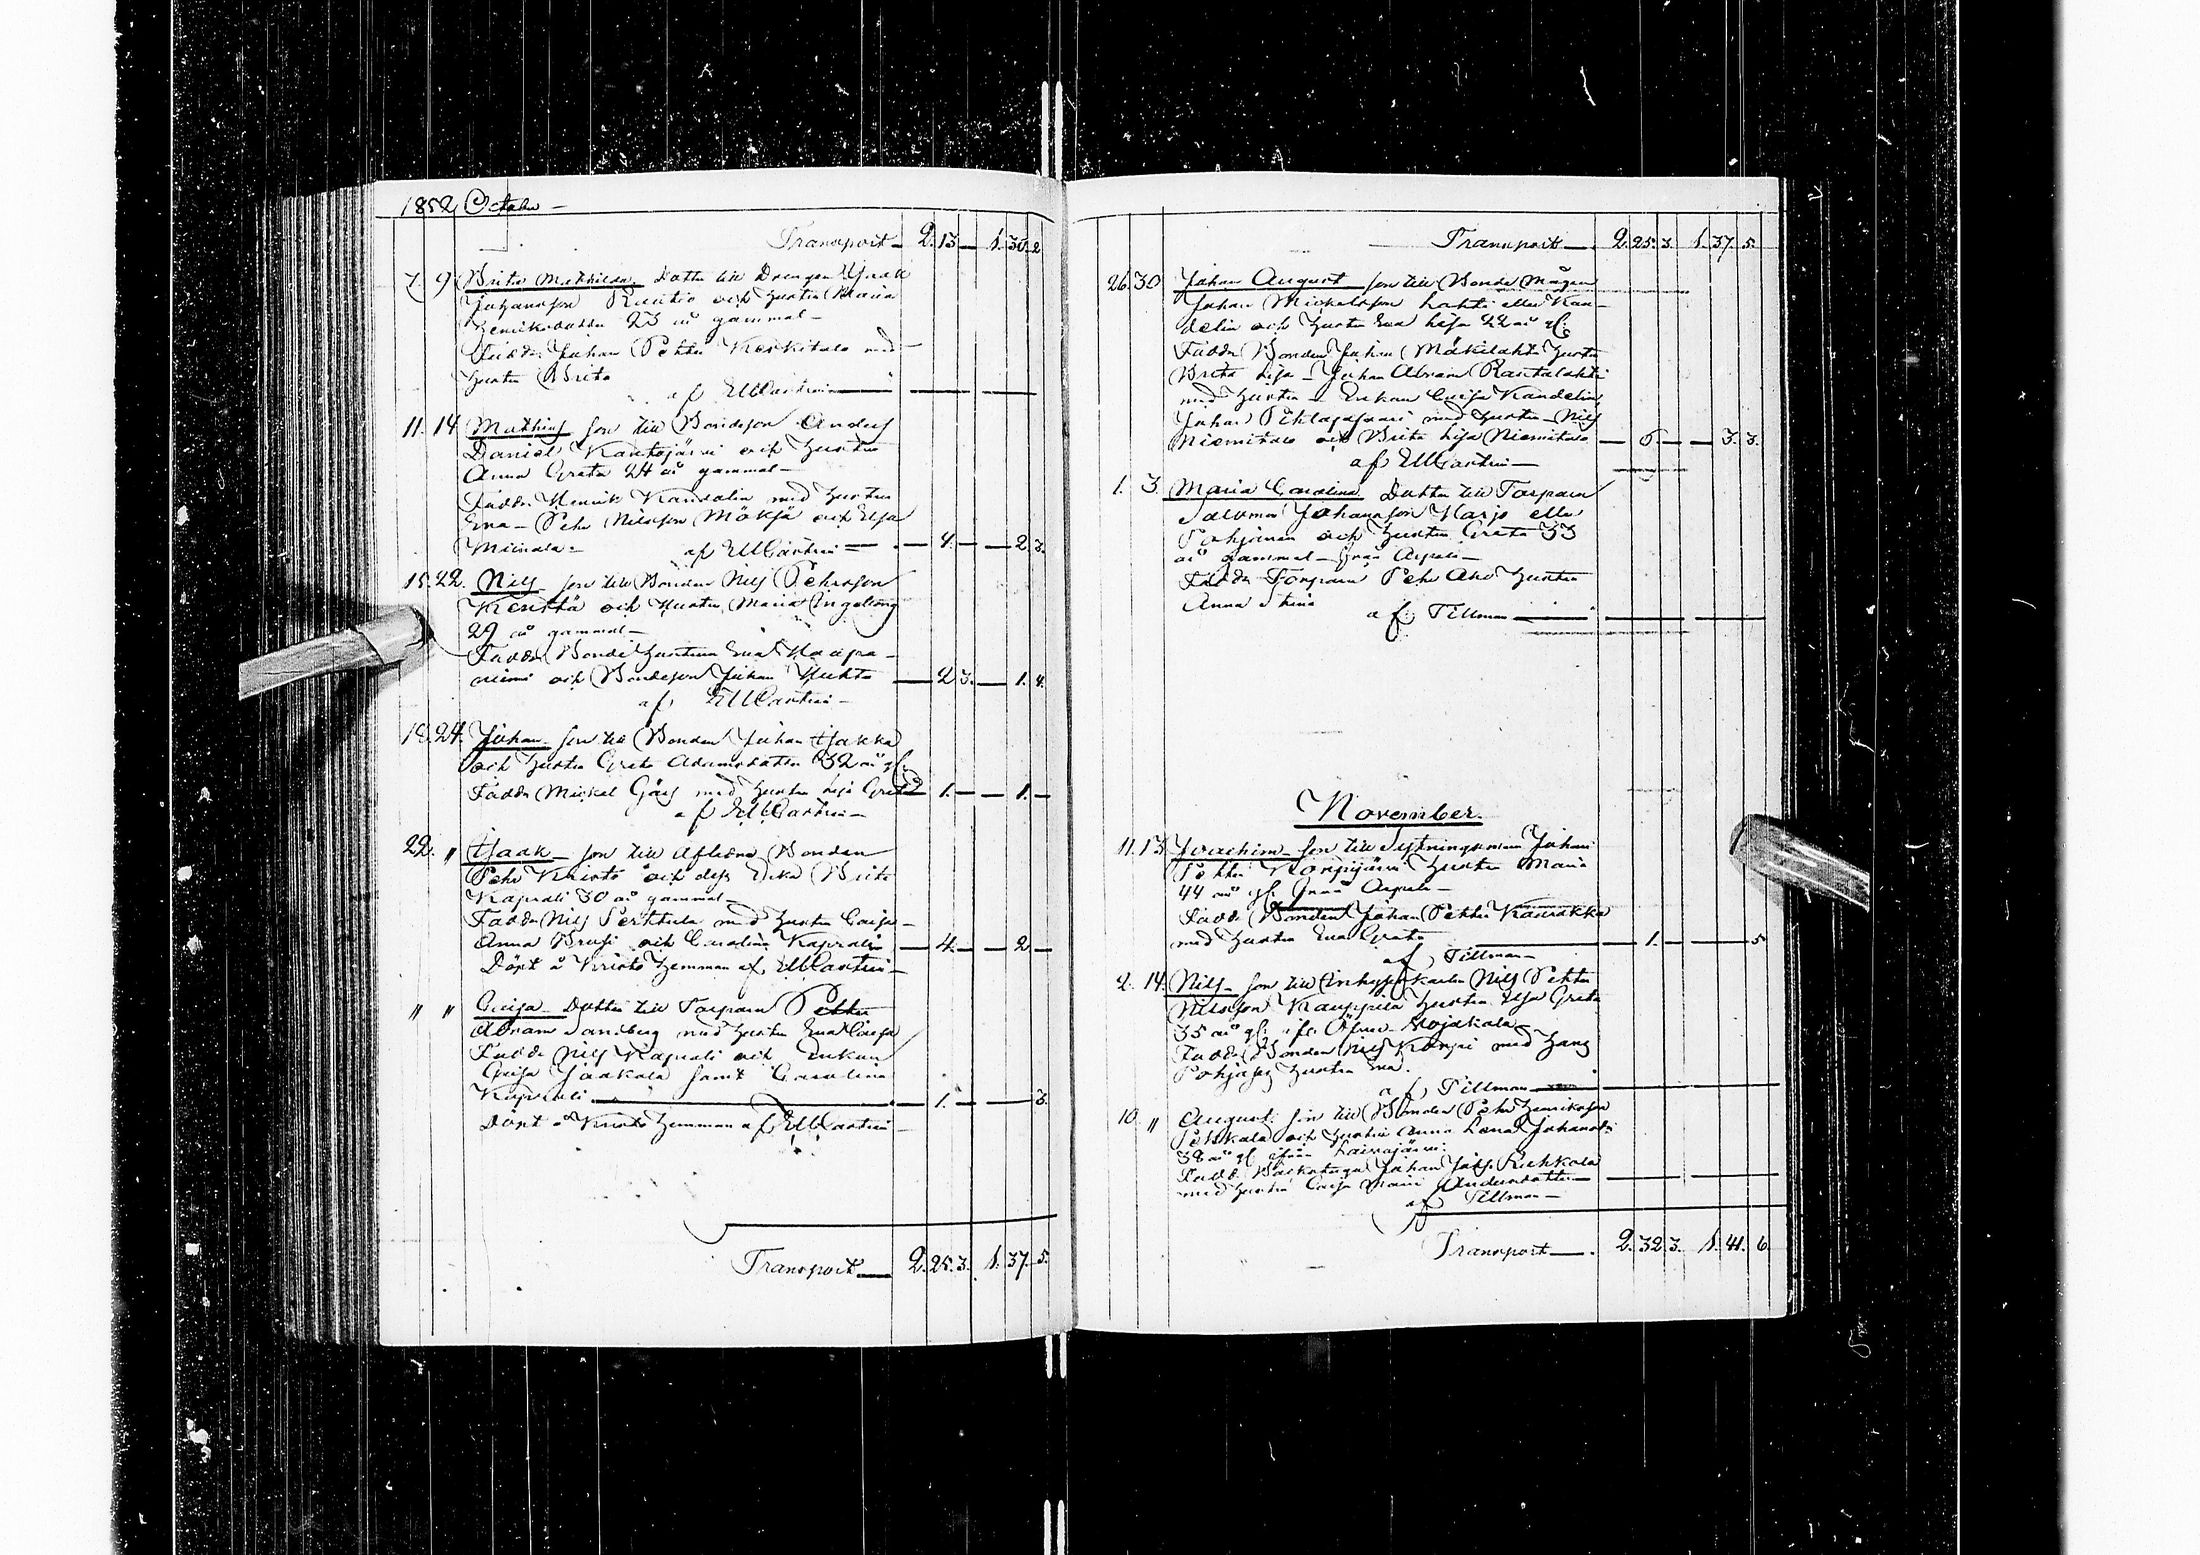 1852 October
Transport 2. 13 1. 35. 2
7. 9 Brita Mathilda Dotter till Drengen Isaak
Johansson Ruikio och hustru Maria
Henriksdotter 23 år gammal
Faddr. Johan Petter Keskitalo med
hustru Brita
af EMCastrén
11. 14 Mathias son till Bondeson Anders
Daniel Kantojärvi och hustru
Anna Greta 24 år gammal
Faddr. Henrik Kandelin med hustru
Eva Pehr Nilsson Mökjä och Elsa
af EMCastrén 4. 2. 3.
15. 22. Nils son till Bonden Nils Pehrsson
Kenttä och Hustru Maria Ingeborg
29 år gammal
Faddr. Bonde hustrun Eva Haapa-
niemi och Bondeson Johan Huhta 2 3. 1. 4.
af EMCastrén
18. 24. Johan son till Bonden Johan Hjakka
och hustru Greta Adamsdotter 32 år gl.
Faddr. Mickel med hustru Greta 1. 1.
af EMCastrén
22. " Isaak son till Aflidne Bonden
Pehr Kristo och dess Enka Brita
Kaprali 30 år gammal
Faddr. Nils Perttula med hustru Caisa
Anna och Carolina Kaprali 4. 2
Döpt å Kristo hemman af EMCastrén
" " Caisa Dotter till Torparn Petter
Abram Sandberg med hustru Eva Caisa
Faddr Nils Kaprali och Enkan
Caisa Jaakola samt Carolina
Kaprali 1. 3.
Döpt å Kristo hemman af EMCastrén
Transport 2. 25. 3. 1. 37. 5.
Transport 2. 25. 3. 1. 37. 5.
26. 30 Johan August son till Bonde Mågen
Johan Mickelsson Lahti eller Kan-
delin och hustru Eva Lisa 22 år gl.
Faddr. Bonden Johan Mäkilahti hustru
Brita Lisa Johan Abram Rantalahti
med hustru Enkan Caisa Kandelin
Johan Pihlajasaari med hustru Nils
Niemitalo och Brita Lisa Niemitalo 6. 3. 3.
af EMCastrén
1. 3. Maria Carolina Dotter till Torparn
Salomon Johansson Harjo eller
Pohjanen och hustru Greta 33
år gammal från Arpela
Faddr Torparn Pehr Aho hustru
Anna Stina
af Tillman
November.
11. 13 Joachim son till Sytningsman Johan
Petter Korpijärvi hustru Maria
44 år gl. från Arpela
Faddr Bonden Johan Petter Kaurakka
med hustru Eva Greta 1. 5
af Tillman
2. 14. Nils son till Inhyses Karlen Nils Petter
Nilsson Kauppila hustru Elsa Greta
35 år gl. Öfver Vojakala
Faddr Bonden Nils Korpi med Hans
Pohjas hustru Eva.
af Tillman
10 " August son till Bonden Pehr Henriksson
och hustru Anna Lena Johansd:r
38 år gl. ifrån Laivajärvi
Faddr. Johan
med hustru Caisa Maria Andersdotter
af Tillman
Transport 2. 32 3. 1. 41. 6